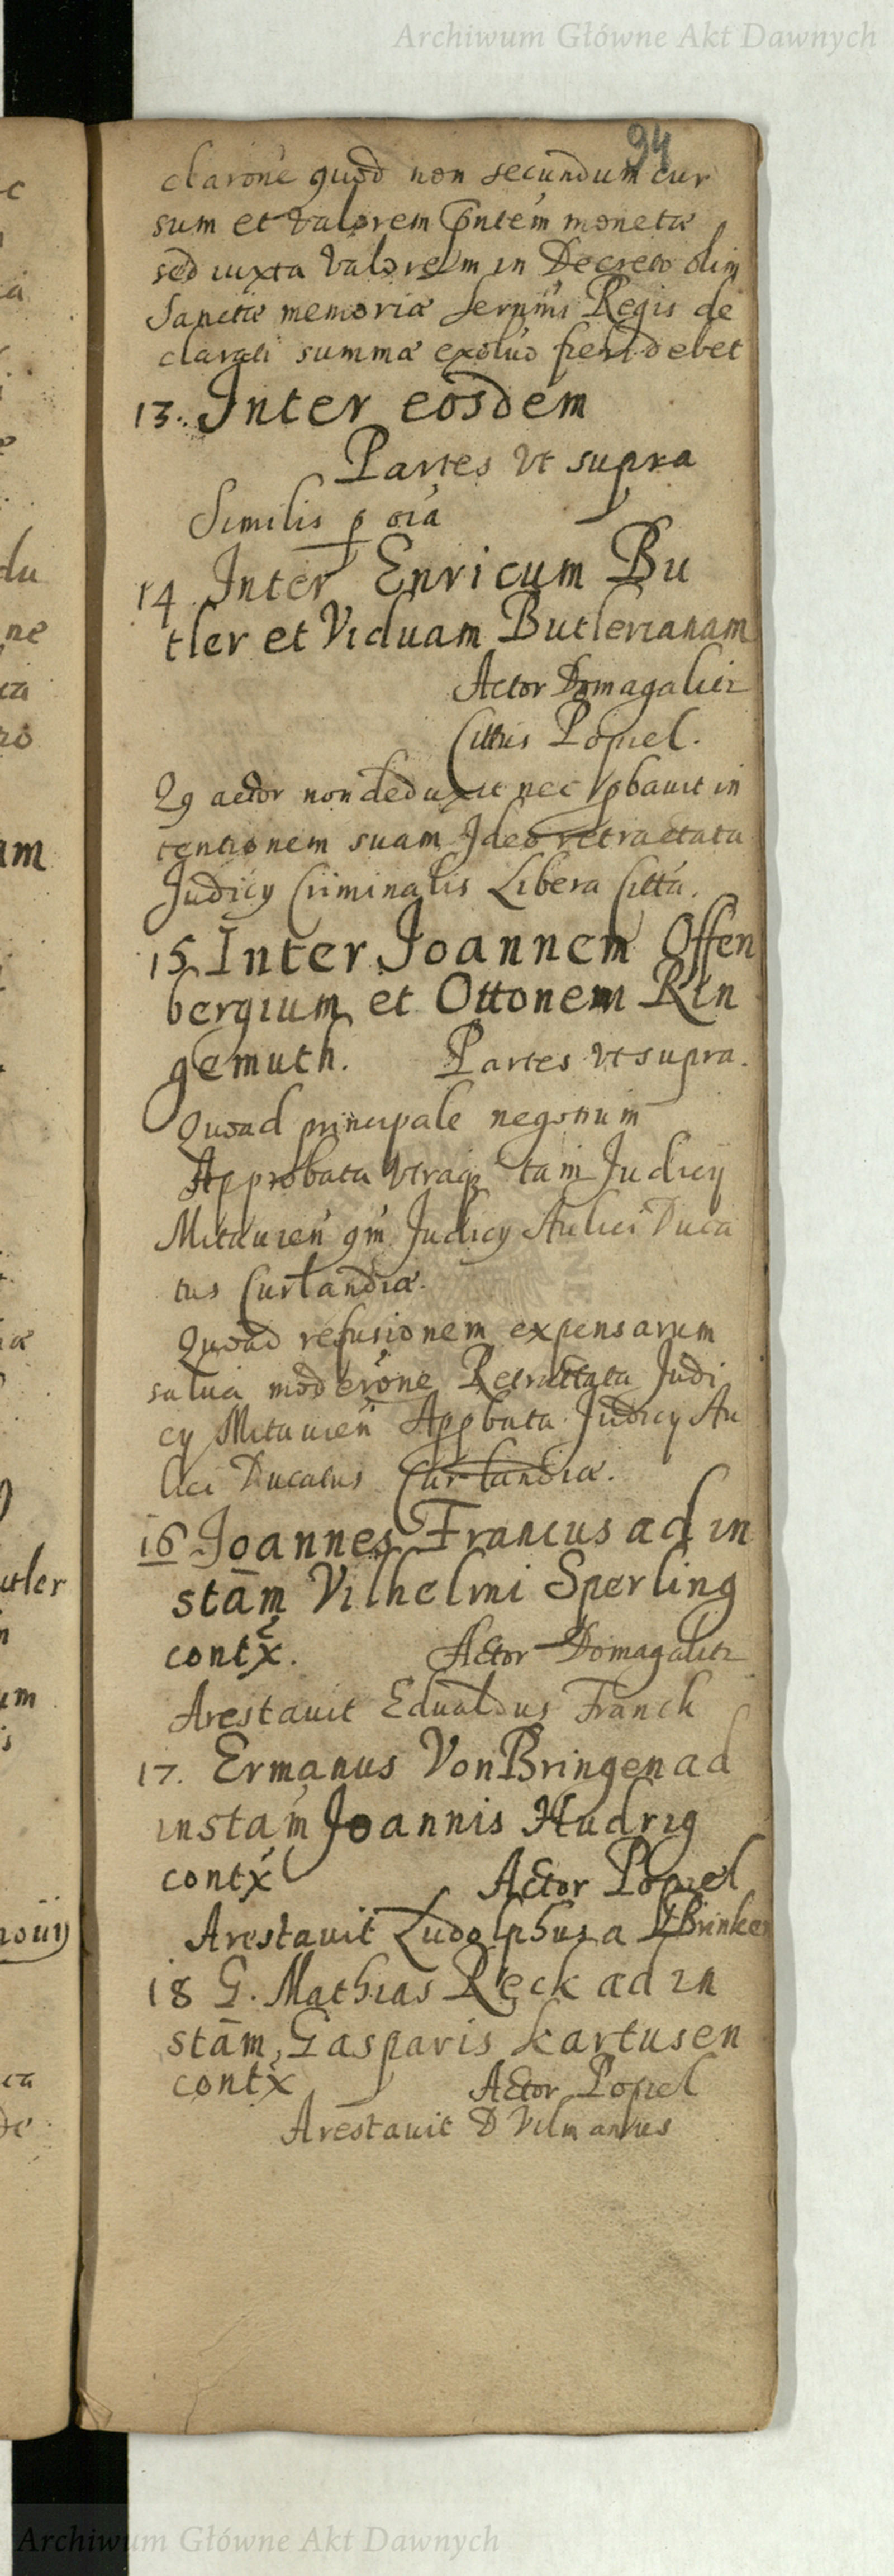 Archiwum Główne Akt Dawnych
94
clarone quod non secundum cur
sum et valorem pntem monetæ
sed iuxta valorem in Decreto olim
Sanctæ memoriæ Sernmi Regis de
clarati summæ exoluo fieri debet
13. Inter eosdem
Partes vt supra
Similis p oia
14 Inter Enricum Bu
tler et Viduam Butlerianam
Actor Domagalicz
Cittus Popiel.
Qq actor non deduxit nec pbauit in
tentionem suam Ideo retractata
Judicy Criminalis Libera Citta.
15 Inter Joannem Offen
bergium et Ottonem Rin
gemuth. Partes vt supra.
Quoad principale negotium
Approbata vtraq tam Judicy
Mitauien qm Judicy Aulici Duca
tus Curlandiæ.
Quoad refusionem expensarum
salua moderone Retractata Judi
cy Mitauien Appbata Judicy Au
lici Ducatus Curlandiæ.
16 Joannes Francus ad in
stam Vilhelmi Sperling
contx. Actor Domagalicz
Arestauit Edualdus Franck
17. Ermanus Von Bringen ad
instam Joannis Hudrig
contx Actor Popiel
Arestauit Ludolphus a Brinken
18 G. Mathias Reck ad in
stam Gasparis Kartusen
contx Actor Popiel
Arestauit D Vilmanus
Archiwum Główne Akt Dawnych